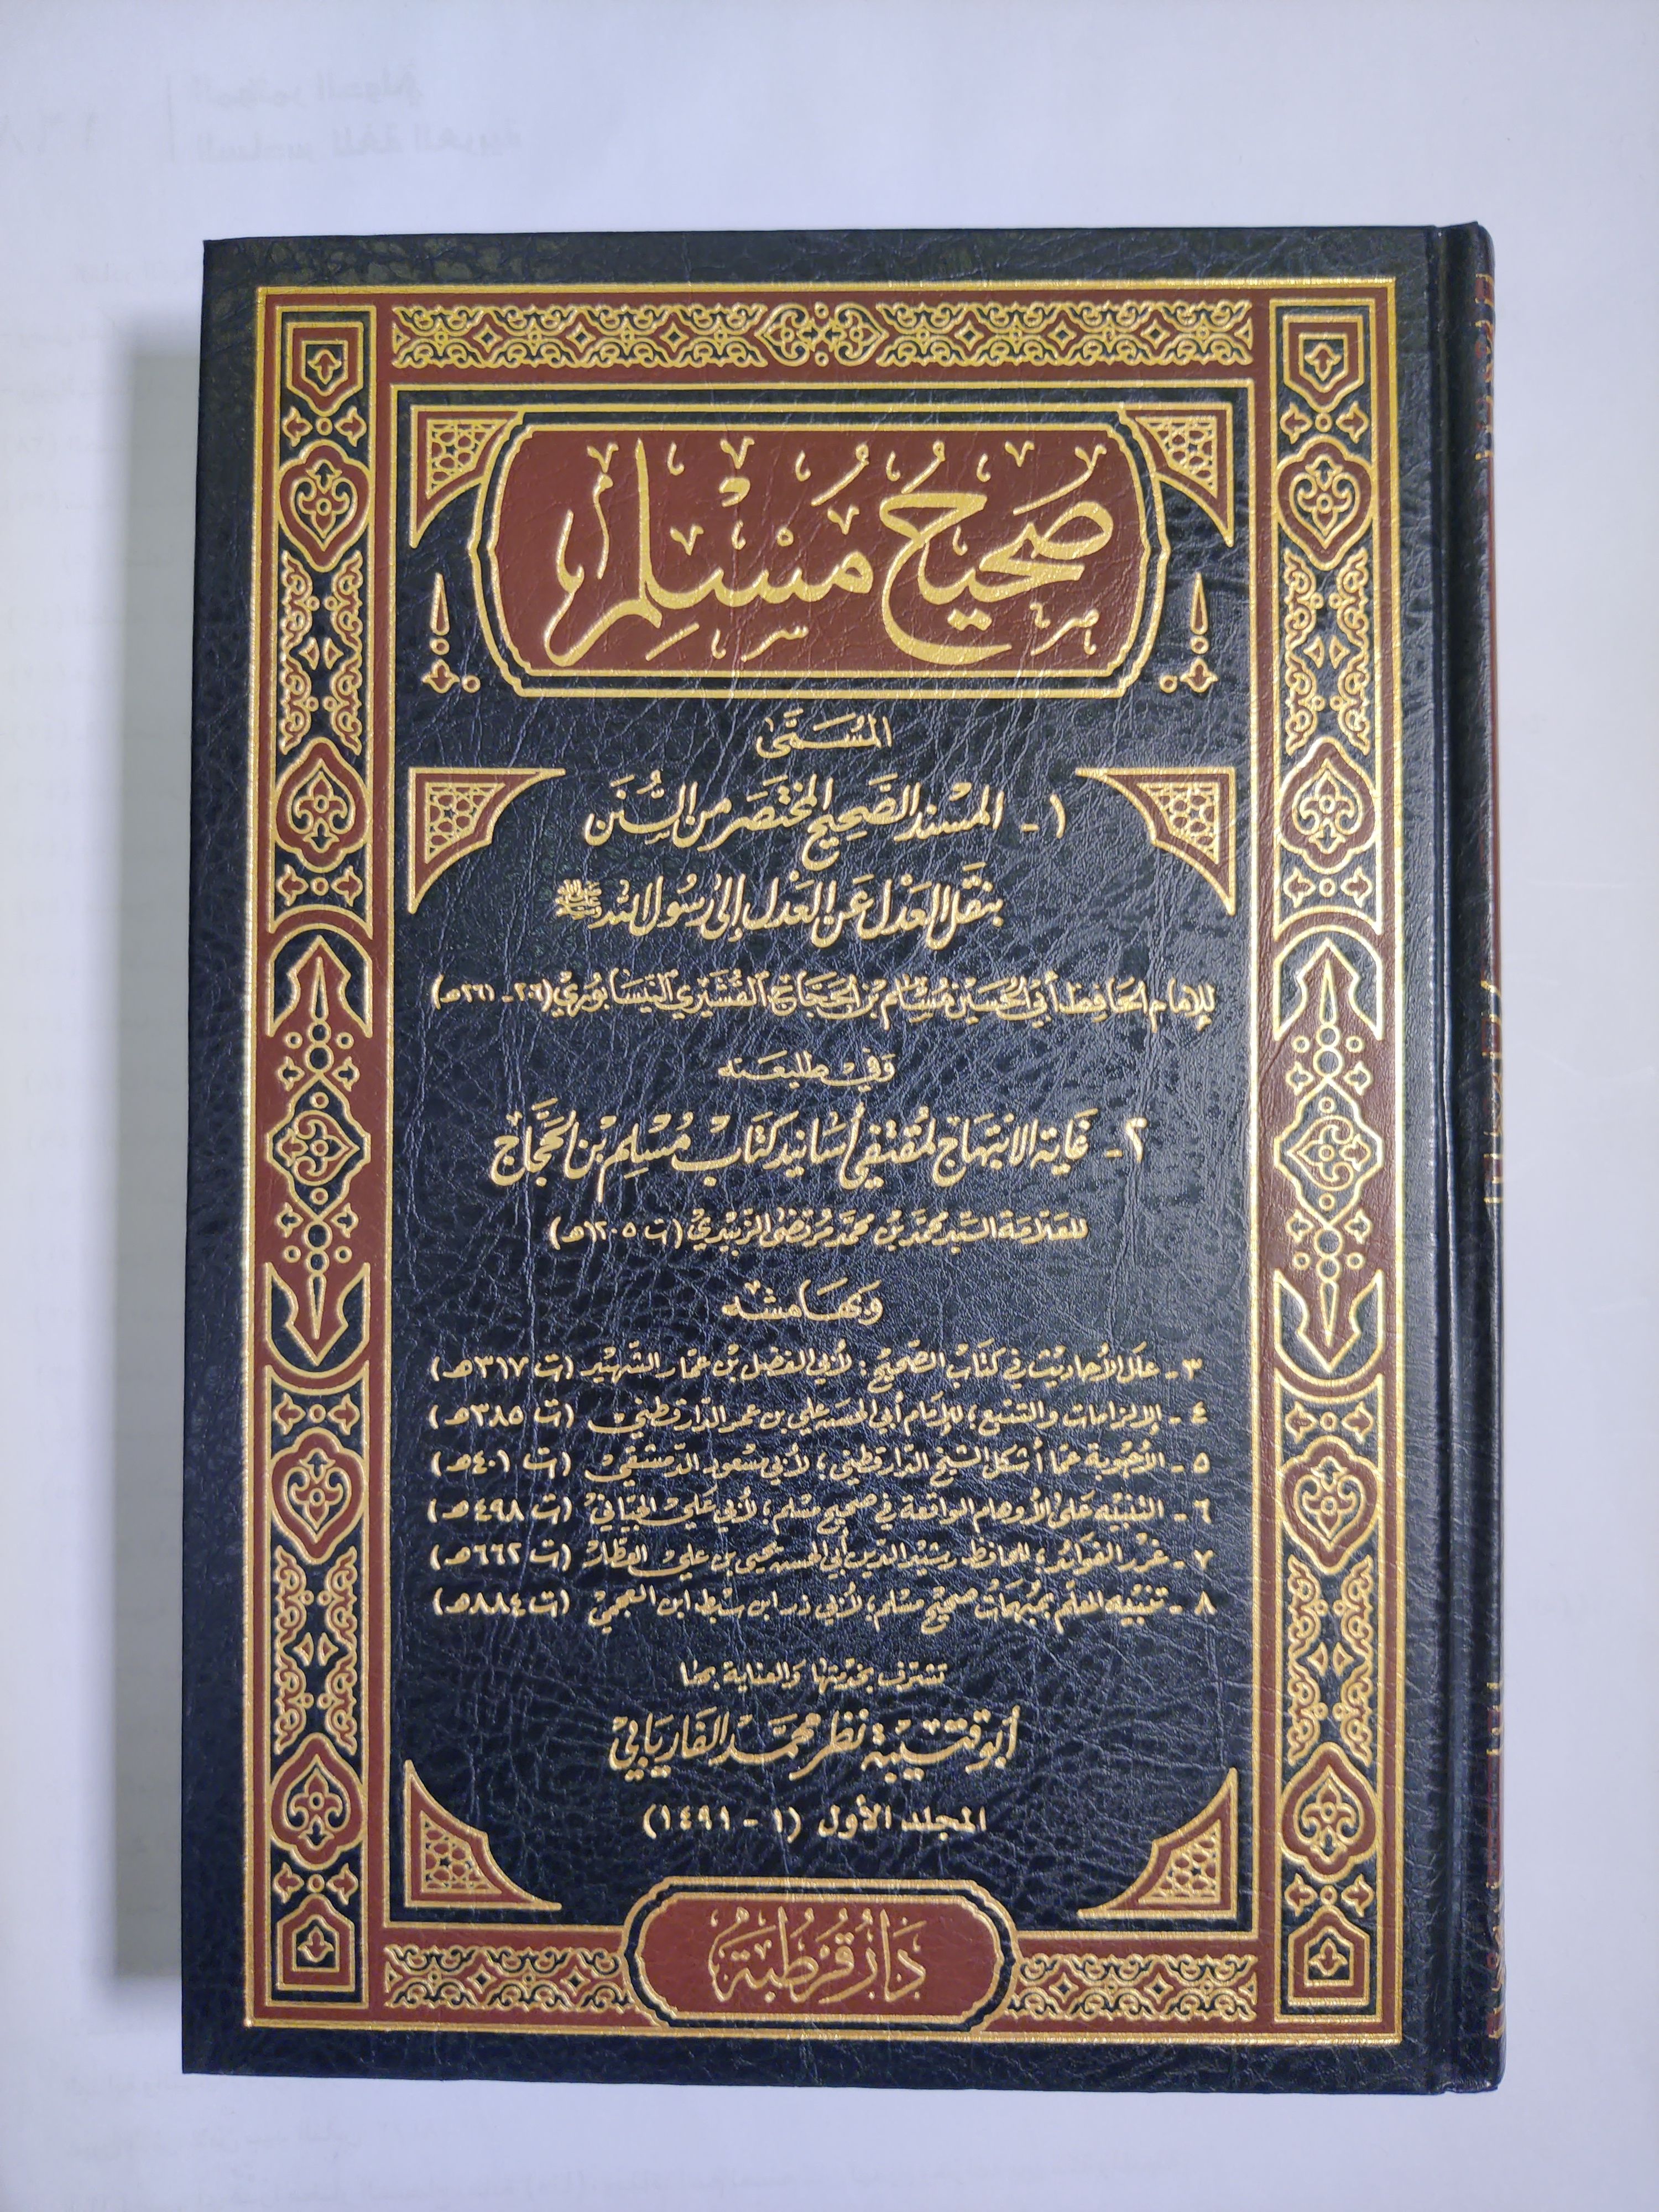 صَحِيحُ مُسْلِم
المُسَمَّى
١- المسْند الصَّحِيح المخْتصَر من السُّنَن
بنَقْل العَدْل عَن العَدْل إلى رَسُول الله ﷺ
للإمام الحافظ أبي الحسين مسلم بن الحجاج القشيري النيسابوري (٢٠٦-٢٦١هـ)
وَفي طليعَته
٢- غَاية الابتهَاج لمُقتفي أسَانيد كتَاب مُسْلِم بن الحَجَّاج
للعلامة السيد محمد بن محمد مرتضى الزبيدي (ت ١٢٠٥هـ)
وبهَامشه
٣- علل الأحاديث في كتَاب الصَّحيح: لأبي الفضل بن عمّار الشهيد (ت ٣١٧هـ)
٤- الإلزامات والتتبع: للإمام أبي الحسن علي بن عمر الدّارقطني (ت ٣٨٥هـ)
٥- الأجوبة عمّا أشكل الشيخ الدّارقطني: لأبي مسعود الدّمشقي (ت ٤٠١هـ)
٦- التنبيه على الأوهام الواقعة في صحيح مسلم: لأبي علي الجياني (ت ٤٩٨هـ)
٧- غرر الفوائد: للحافظ رشيد الدين أبي الحسن يحيى بن علي العطّار (ت ٦٦٢هـ)
٨- تنبيه المعلم بمُبهَمات صحيح مسلم: لأبي ذر ابن سبط ابن العجمي (ت ٨٨٤هـ)
تشرف بخدمتها والعناية بها
أبو قتيبة نظر محمد الفاريابي
المجلد الأول (١ - ١٤٩١)
دَارُ قُرْطُبَةُ